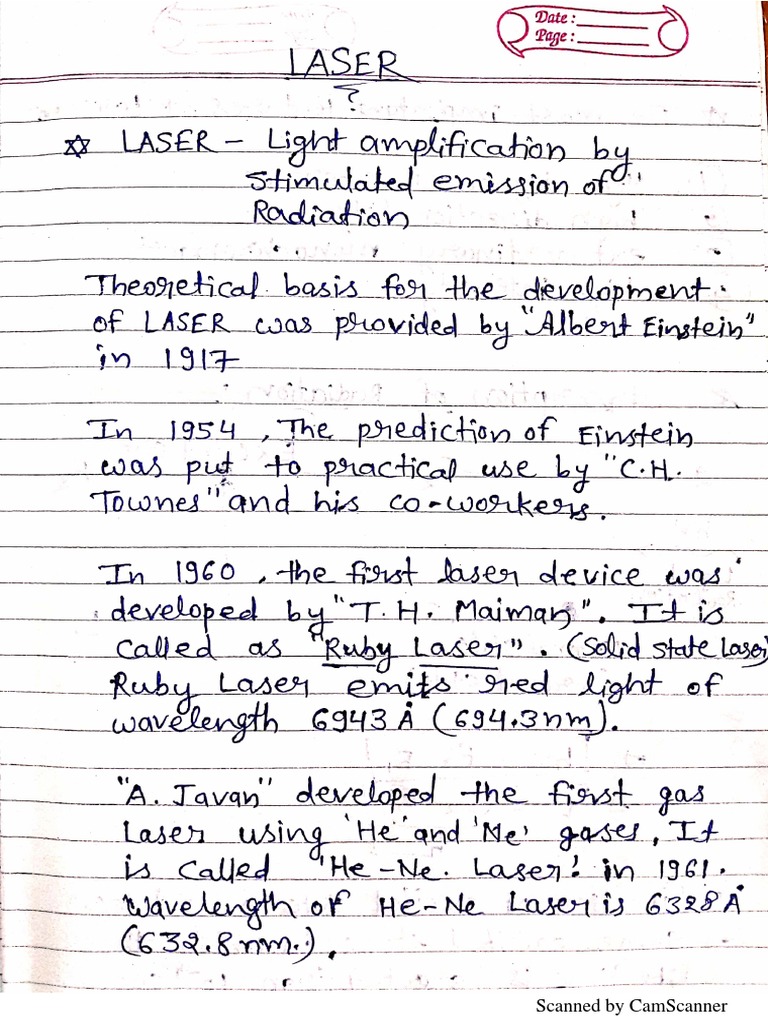 Date :
Page :
LASER
LASER – Light amplification by
stimulated emission of
Radiation
Theoretical basis for the development
of LASER was provided by "Albert Einstein"
in 1917
In 1954 , The prediction of Einstein
was put to practical use by "C.H.
Townes" and his co-workers.
In 1960 , the first laser device was
developed by "T. H. Maiman". It is
called as "Ruby Laser". (Solid State Laser)
Ruby Laser emits red light of
wavelength 6943 Å (694.3nm).
"A. Javan" developed the first gas
Laser using 'He' and 'Ne' gases, It
is called 'He-Ne. Laser' in 1961.
Wavelength of He-Ne Laser is 6328 Å
(632.8 nm.).
Scanned by CamScanner